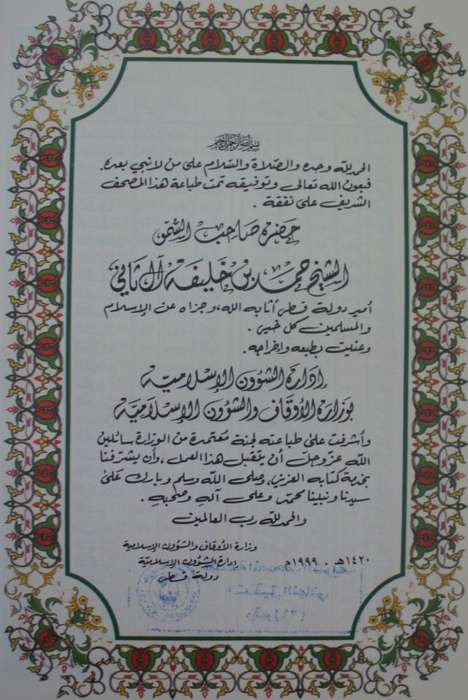 بسم الله الرحمن الرحيم
الحمد لله وحده والصلاة والسلام على من لا نبي بعده.
فبعون الله تعالى وتوفيقه تمت طباعة هذا المصحف
الشريف على نفقة .
حضرة صاحب السمو
الشيخ حمد بن خليفة آل ثاني
أمير دولة قطر أثابه الله، وجزاه عن الإسلام
والمسلمين كل خير .
وعنيت بطبعه وإخراجه .
إدارة الشؤون الإسلامية
بوزارة الأوقاف والشؤون الإسلامية
وأشرفت على طباعته لجنة معتمدة من الوزارة سائلين
الله عز وجل أن يتقبل هذا العمل، وأن يشرفنا
بخدمة كتابه العزيز، وصلى الله وسلم وبارك على
سيدنا ونبينا محمد وعلى آله وصحبه .
والحمد لله رب العالمين
وزارة الأوقاف والشؤون الإسلامية
إدارة الشؤون الإسلامية
دولة قطر
١٤٢٠هـ . ١٩٩٩م